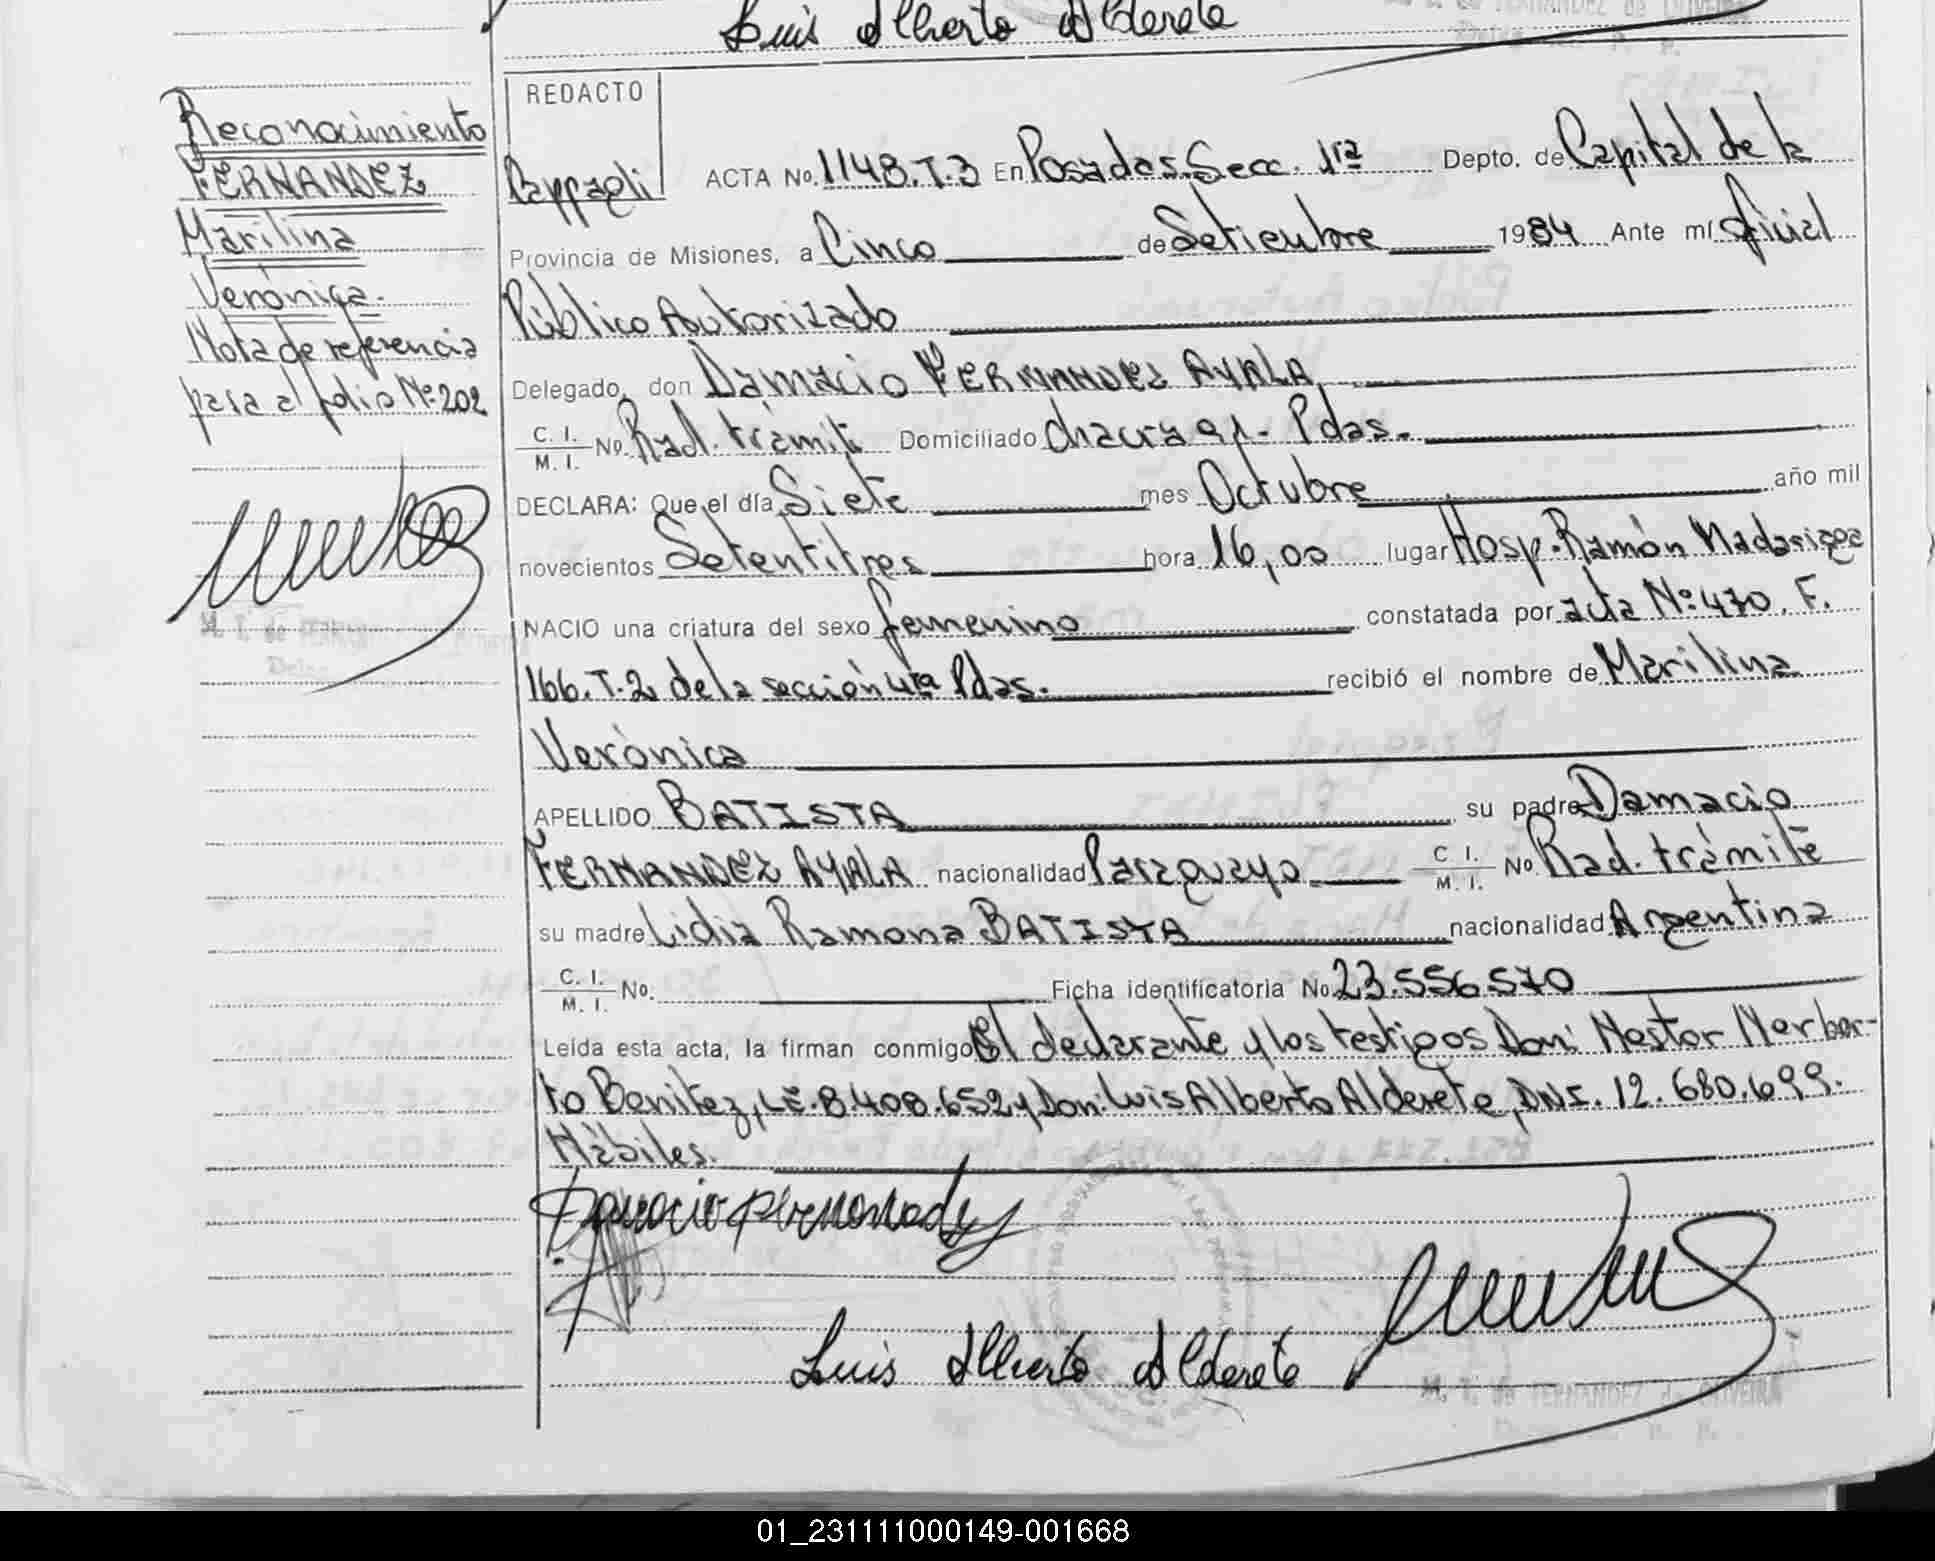 Luis Alberto Alderete
REDACTO
Cappagli
Reconocimiento
FERNANDEZ
Marilina
Verónica.
Nota de referencia
pasa al folio Nº 202
ACTA No. 1148.T.3 En Posadas. Secc. 1ra Depto. de Capital de la
Provincia de Misiones, a Cinco de Setiembre 1984 Ante mí Oficial
Público Autorizado
Delegado, don Damacio FERNANDEZ AYALA,
C. I. / M. I. No. Rad. trámite Domiciliado chacra 91.- Pdas.-
DECLARA: Que el día Siete mes Octubre año mil
novecientos Setentitres hora 16,00 lugar Hosp. Ramón Madariaga
NACIO una criatura del sexo femenino constatada por acta Nº 470. F.
166. T. 2 de la sección 4ta Pdas. recibió el nombre de Marilina
Verónica
APELLIDO BATISTA su padre Damacio
FERNANDEZ AYALA nacionalidad Paraguayo C. I. / M. I. No. Rad. trámite
su madre Lidia Ramona BATISTA nacionalidad Argentina
C. I. / M. I. No. Ficha identificatoria No. 23.556.570
Leída esta acta, la firman conmigo El declarante y los testigos Don: Nestor Norber-
to Benitez, LE. 8.408.652 y Don: Luis Alberto Alderete, DNI. 12.680.699.
Hábiles.
Damacio Fernandez
Luis Alberto Alderete
M. T. de FERNANDEZ de OLIVEIRA
01_231111000149-001668